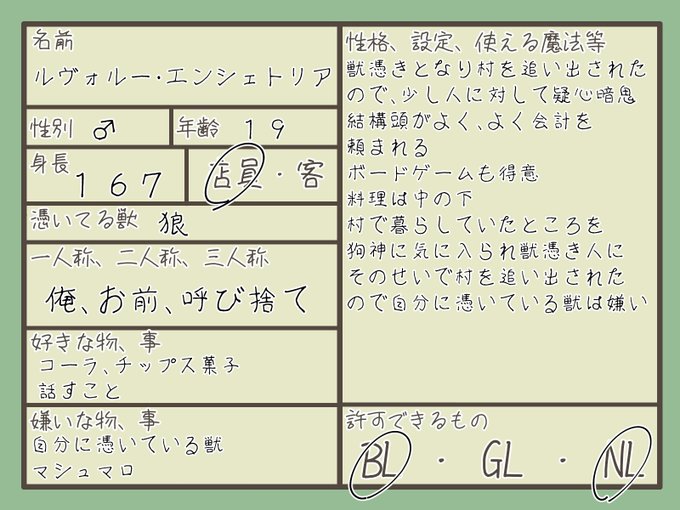 名前
ルヴォルー・エンシェトリア
性別 ♂
年齢 19
身長 167
店員・客
憑いてる獣 狼
一人称、二人称、三人称
俺、お前、呼び捨て
好きな物、事
コーラ、チップス菓子
話すこと
嫌いな物、事
自分に憑いている獣
マシュマロ
性格、設定、使える魔法等
獣憑きとなり村を追い出された
ので、少し人に対して疑心暗思
結構頭がよく、よく会計を
頼まれる
ボードゲームも得意
料理は中の下
村で暮らしていたところを
狗神に気に入られ獣憑き人に
そのせいで村を追い出された
ので自分に憑いている獣は嫌い
許すできるもの
BL・GL・NL